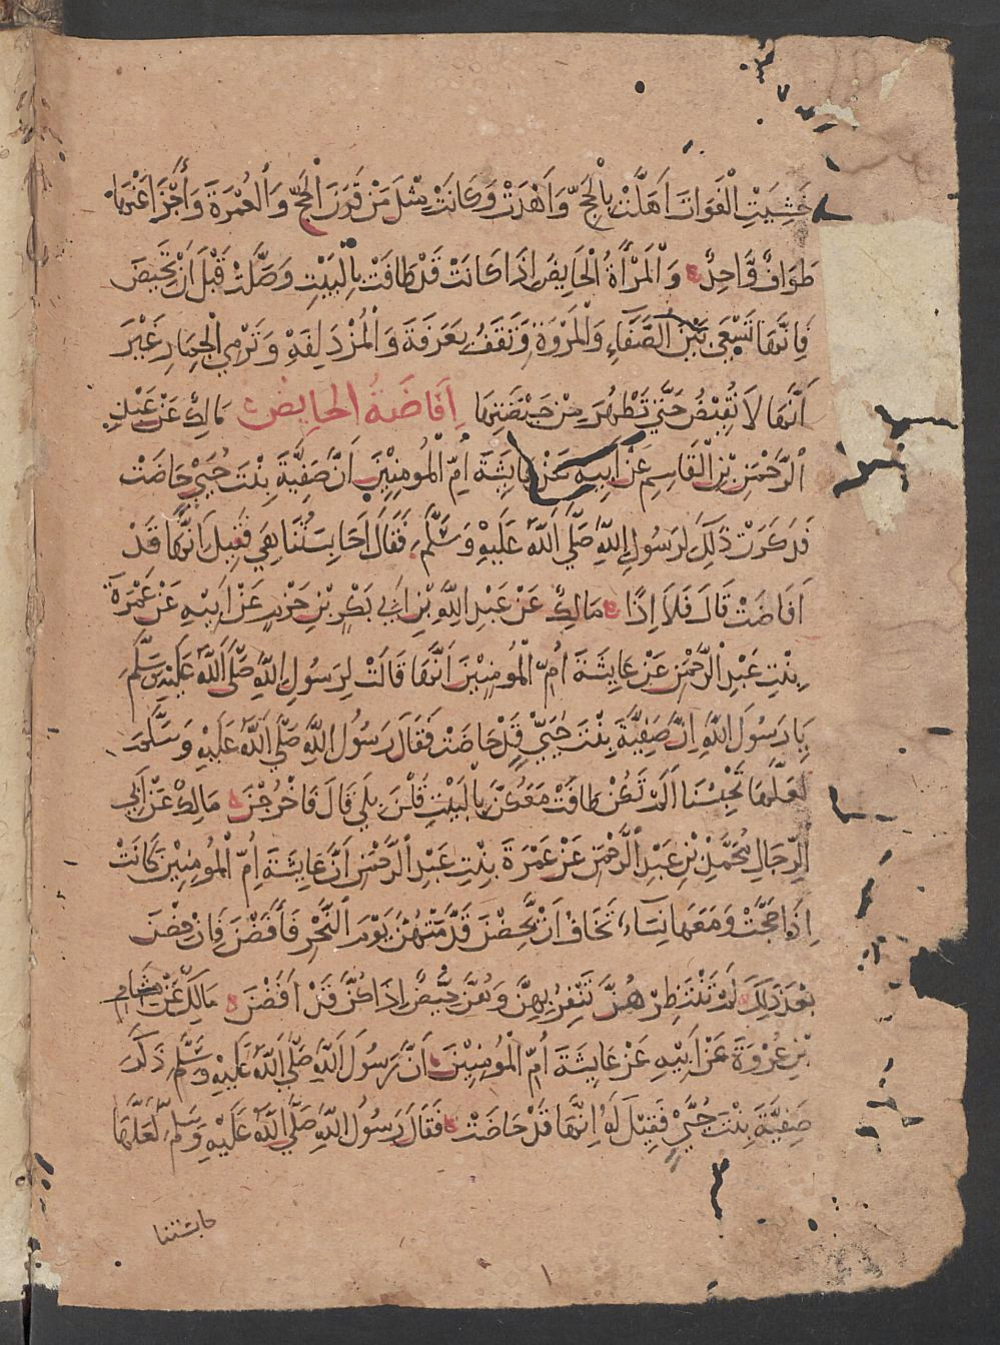 خَشِيَتِ الْفَوَاتَ اَهَلَّتْ بِالْحَجِّ وَاَهْدَتْ وَكَانَتْ مِثْلَ مَنْ قَرَنَ الْحَجَّ وَالْعُمْرَةَ وَأَجْزَا عَنْهَا
طَوَافٌ وَّاحِدٌ وَالْمَرْأَةُ الْحَايِضُ اِذَا كَانَتْ قَدْ طَافَتْ بِالْبَيْتِ وَصَلَّتْ قَبْلَ اَنْ تَحِيضَ
فَاِنَّهَا تَسْعَى بَيْنَ الصَّفَاءِ وَالْمَرْوَةِ وَتَقِفُ بِعَرَفَةَ وَالْمُزْدَلِفَةِ وَتَرْمِي الْجِمَارَ غَيْرَ
اَنَّهَا لَا تُفِيْضُ حَتَّى تَطْهُرَ مِنْ حَيْضَتِهَا اِفَاضَةُ الحايض مَالِكٌ عَنْ عَبْدِ
الرَّحْمَنِ بْنِ الْقَاسِمِ عَنْ اَبِيهِ عَنْ عَايِشَةَ اُمِّ الْمُومِنِيْنَ اَنَّ صَفِيَّةَ بِنْتَ حُيَيٍّ حَاضَتْ
فَذَكَرَتْ ذٰلِكَ لِرَسُولِ اللّٰهِ صَلَّى اللّٰهُ عَلَيْهِ وَسَلَّمَ فَقَالَ اَحَابِسَتُنَا هِيَ فَقِيلَ اِنَّهَا قَدْ
اَفَاضَتْ قَالَ فَلَا اِذًا مَالِكٌ عَنْ عَبْدِ اللّٰهِ بْنِ اَبِي بَكْرِ بْنِ حَزْمٍ عَنْ اَبِيْهِ عَنْ عَمْرَةَ
بِنْتِ عَبْدِ الرَّحْمٰنِ عَنْ عَايِشَةَ اُمِّ الْمُومِنِيْنَ اَنَّهَا قَالَتْ لِرَسُولِ اللّٰهِ صَلَّى اللّٰهُ عَلَيْهِ وَسَلَّمَ
يَا رَسُوْلَ اللّٰهِ اِنَّ صَفِيَّةَ بِنْتَ حُيَيٍّ قَدْ حَاضَتْ فَقَالَ رَسُوْلُ اللّٰهِ صَلَّى اللّٰهُ عَلَيْهِ وَسَلَّمَ
لَعَلَّهَا تَحْبِسُنَا اَلَمْ تَكُنْ طَافَتْ مَعَكُنَّ بِالْبَيْتِ قُلْنَ بَلَى قَالَ فَاخْرُجْنَ مَالِكٌ عَنْ اَبِي
الرِّجَالِ مُحَمَّدِ بْنِ عَبْدِ الرَّحْمٰنِ عَنْ عَمْرَةَ بِنْتِ عَبْدِ الرَّحْمٰنِ اَنَّ عَايِشَةَ اُمَّ الْمُومِنِيْنَ كَانَتْ
اِذَا حَجَّتْ وَمَعَهَا نِسَاءٌ تَخَافُ اَنْ يَّحِضْنَ قَدَّمَتْهُنَّ يَوْمَ النَّحْرِ فَأَفَضْنَ فَاِنْ حِضْنَ
بَعْدَ ذٰلِكَ لَمْ تَنْتَظِرْهُنَّ تَنْفِرُ بِهِنَّ وَهُنَّ حُيَّضٌ اِذَا كُنَّ قَدْ اَفَضْنَ مَالِكٌ عَنْ هشام
بْنِ عُرْوَةَ عَنْ اَبِيْهِ عَنْ عَايِشَةَ اُمِّ الْمُومِنِيْنَ اَنَّ رَسُوْلَ اللّٰهِ صَلَّى اللّٰهُ عَلَيْهِ وَسَلَّمَ ذَكَرَ
صَفِيَّةَ بِنْتَ حُيَيٍّ فَقِيْلَ لَهُ اِنَّهَا قَدْ حَاضَتْ فَقَالَ رَسُوْلُ اللّٰهِ صَلَّى اللّٰهُ عَلَيْهِ وَسَلَّمَ لَعَلَّهَا
حابستنا